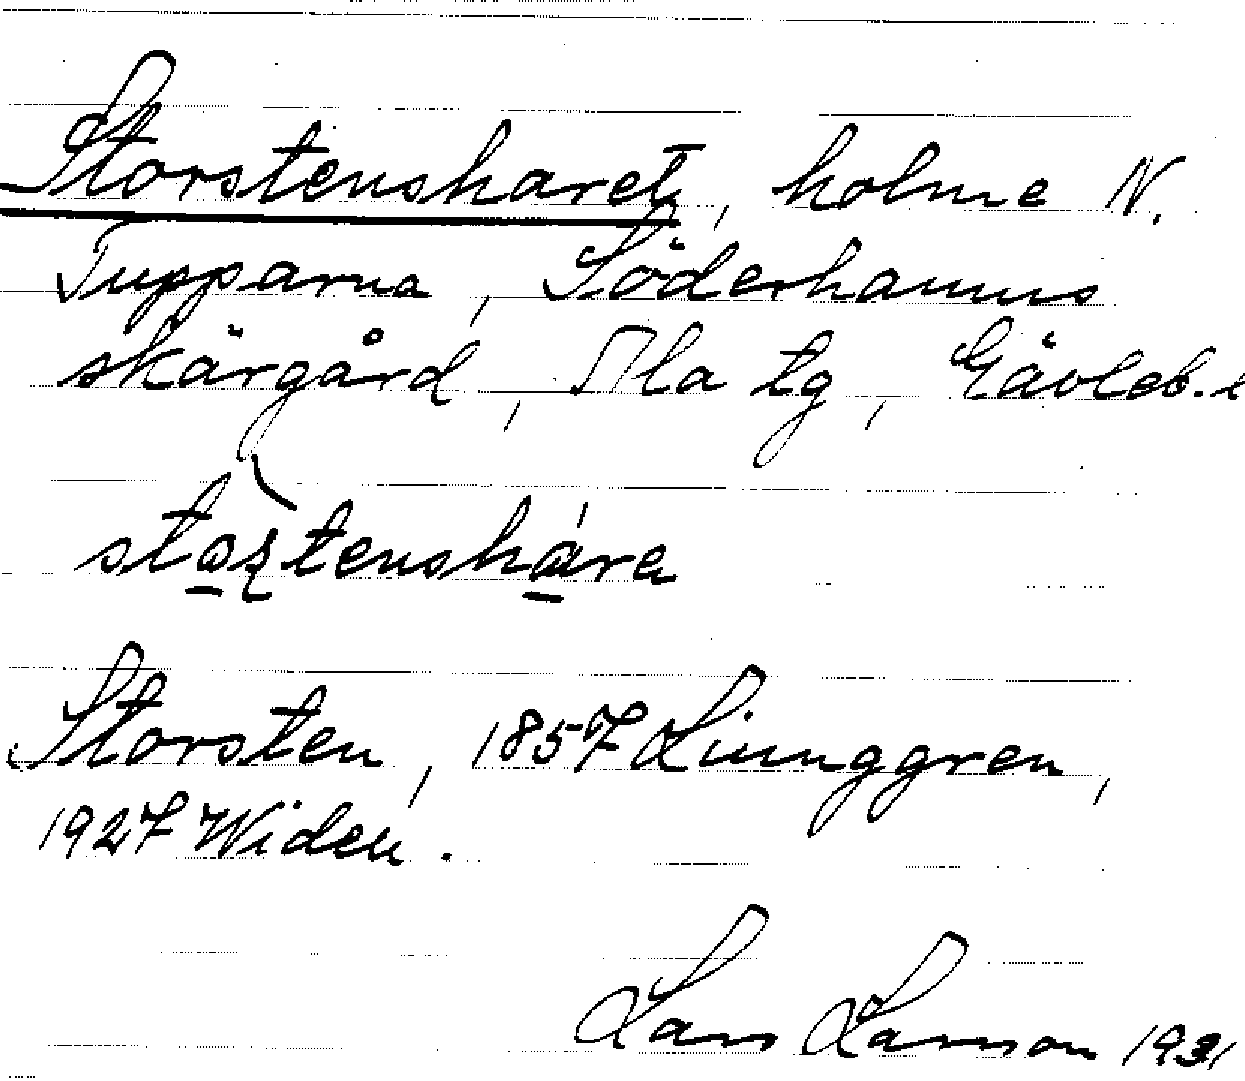 Storstensharet, holme N.
Tupparna, Söderhamns
skärgård, Ala tg, Gävleb. l
storstenshára
Storsten, 1857 Liunggren,
1927 Widen.
Lars Larsson 1931